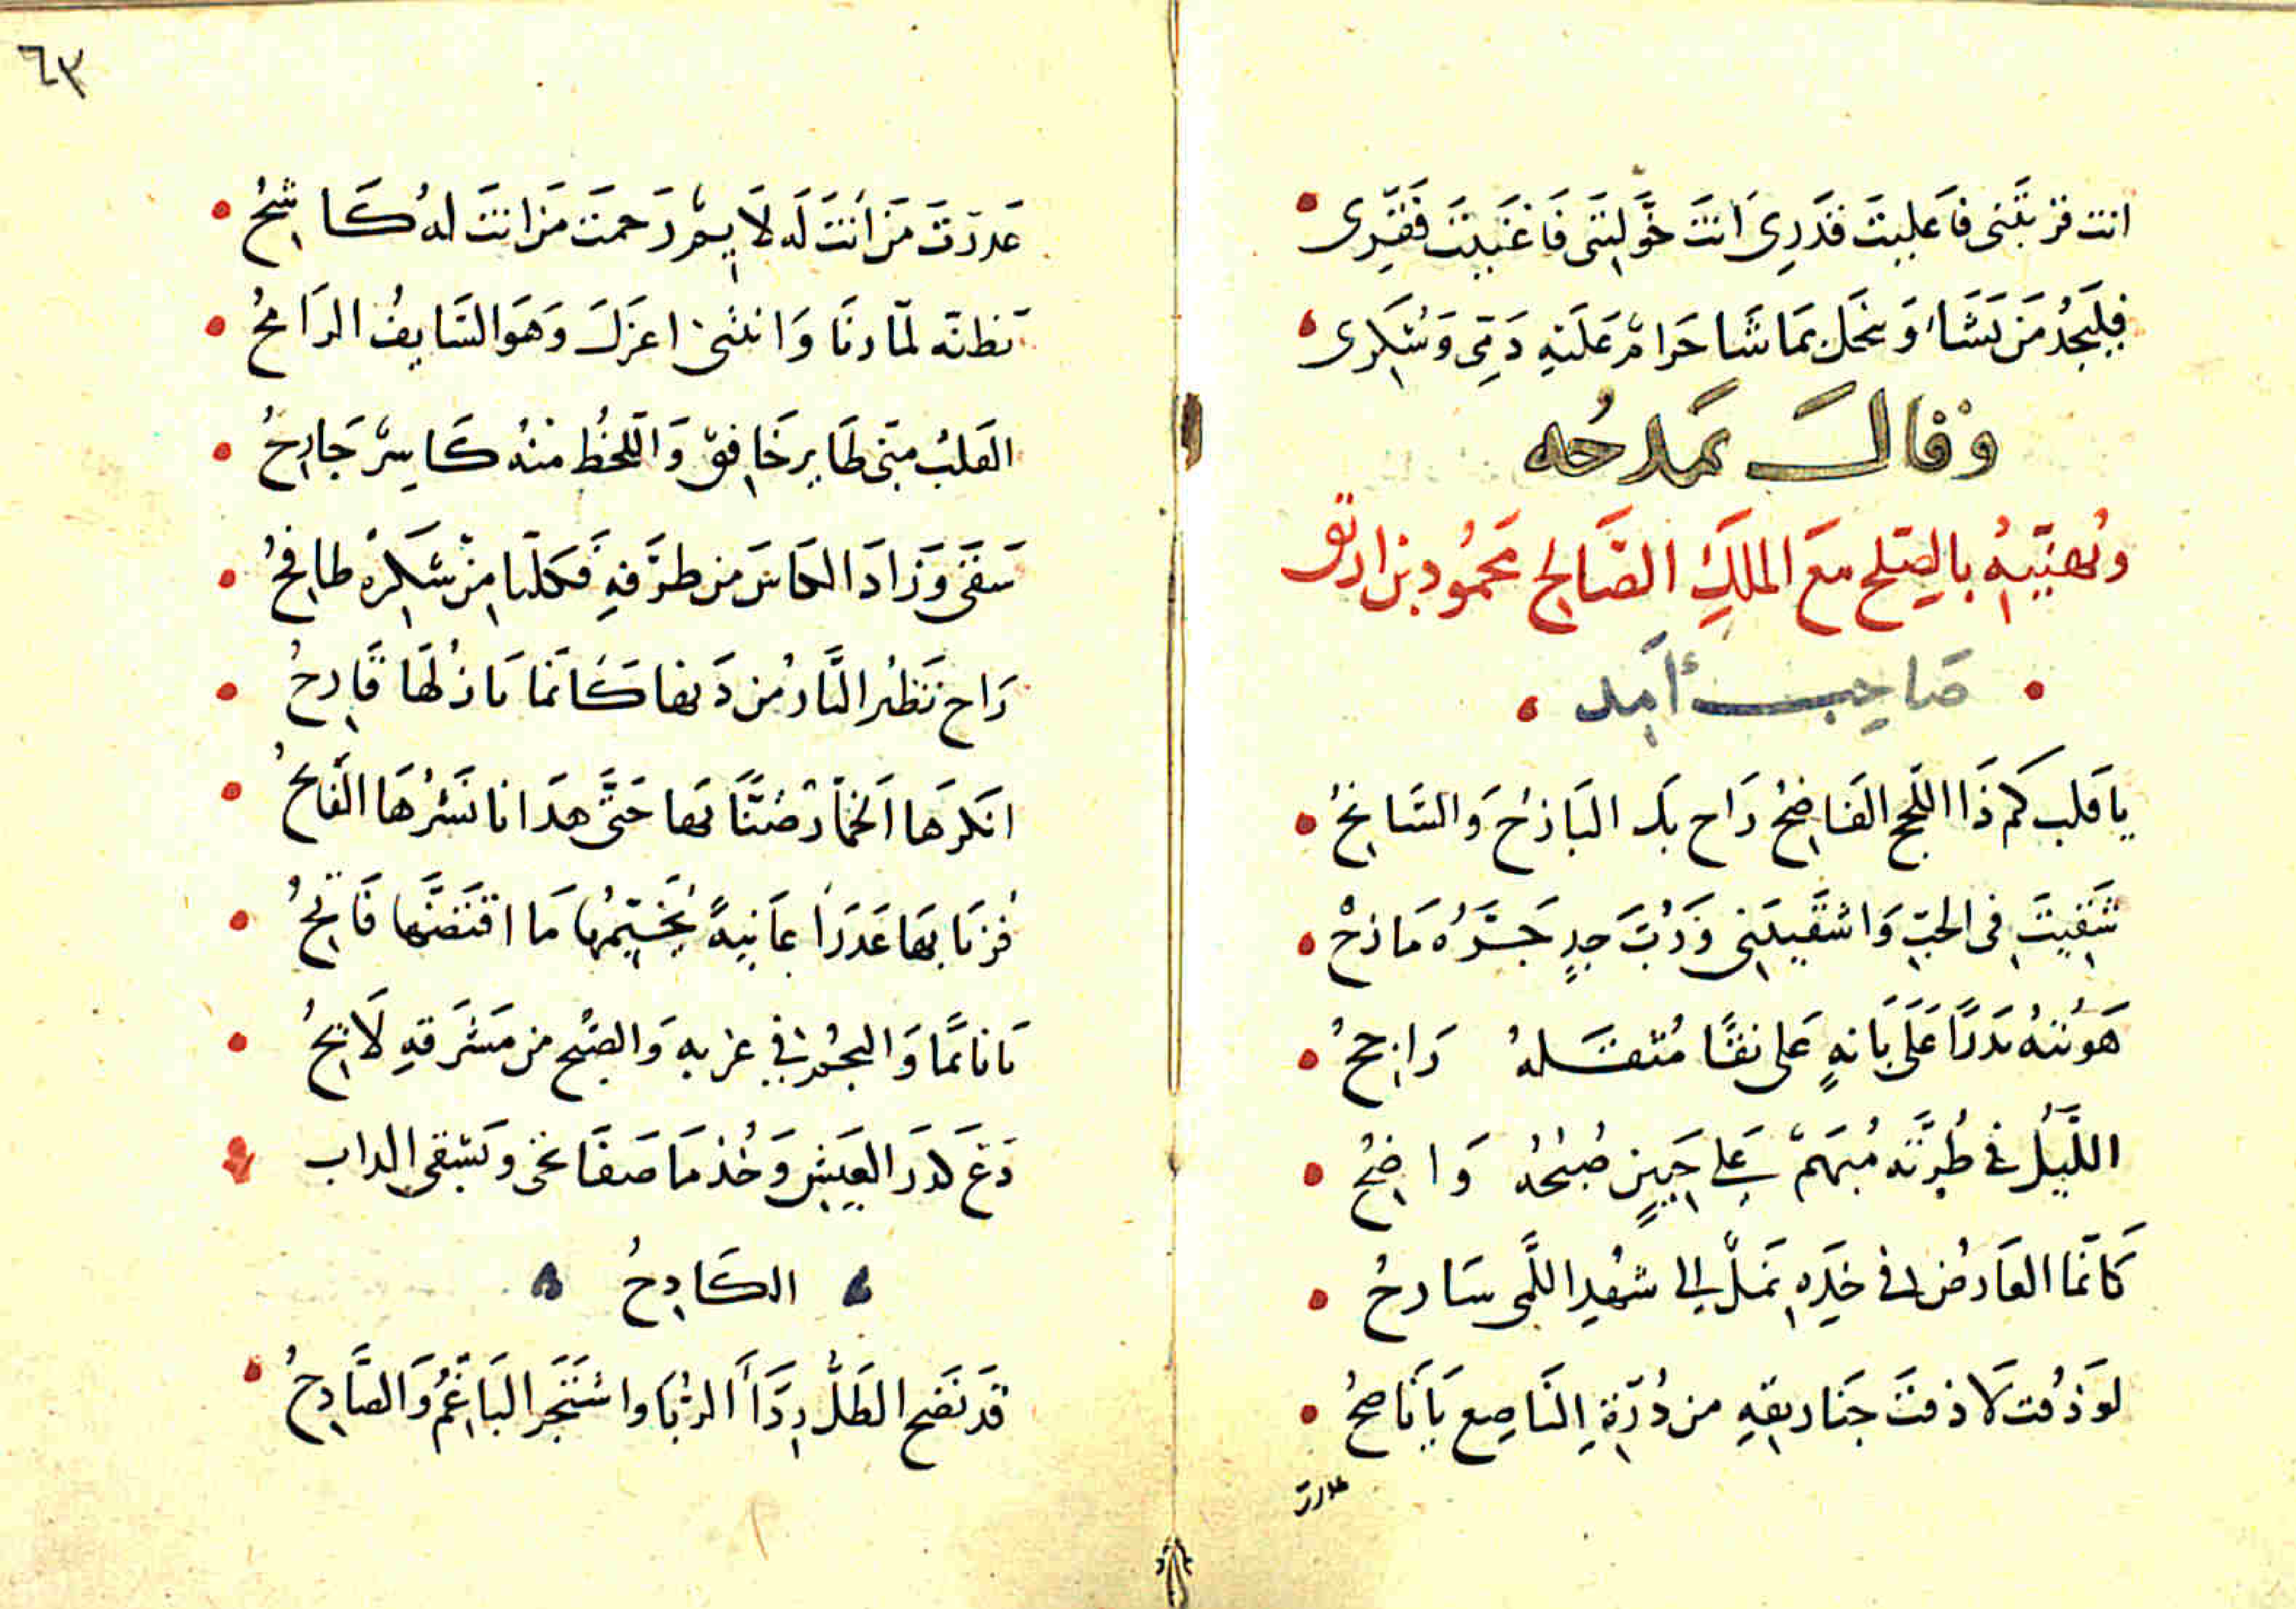 انت قربتنى فاعليت قدرى انت خولتنى فاغنيت فقرى
فليجد من يشا ويبخل بما شا حرام عليه ذمى وشكرى
وقال يمدحه
ويهنيه بالصلح مع الملك الصالح محمود بن ارتق
صاحب آمد
يا قلب كم ذا اللجج الفاضح راح بك الباذخ والشامخ
شقيت فى الحب واشقيتنى ورب جد جره مازح
هويته بدرا على بانه على نقا مثقله راجح
الليل فى طرته مبهم على جبين صبحه واضح
كانما العارض فى خده نمل الى شهد اللمى سارح
لو ذقت لا ذقت جنا ريقه من درة الناصع يا ناصح
عذرت
٦٣
عذرت من أنت له لايم رحمت من انت له كاشح
تظنه لما رنا وانثنى اعزل وهو السايف الرامح
القلب منى طاير خافق واللحظ منه كاسر جارح
سقى وزاد الكاس من طرفه فكلنا من سكره طافح
راح تنظر النار من دنها كانما بازلها قادح
انكرها الخمار ضنا بها حتى هدانا نشرها الفايح
فزنا بها عذراء عانية بختمها ما اقتضها فاتح
يا نايما والنجم فى غربه والصبح من مشرقه لايح
دع كدر العيش وخذ ما صفا نحى ويشقى الداب
الكادح
قد نضح الطل رداء الربا واشتجر الباغم والصادح